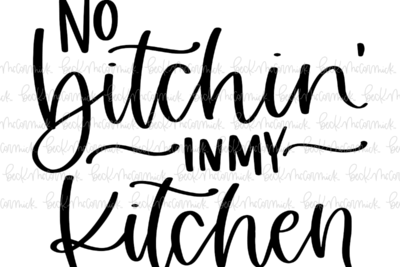 NO
bitchin'
IN MY
kitchen